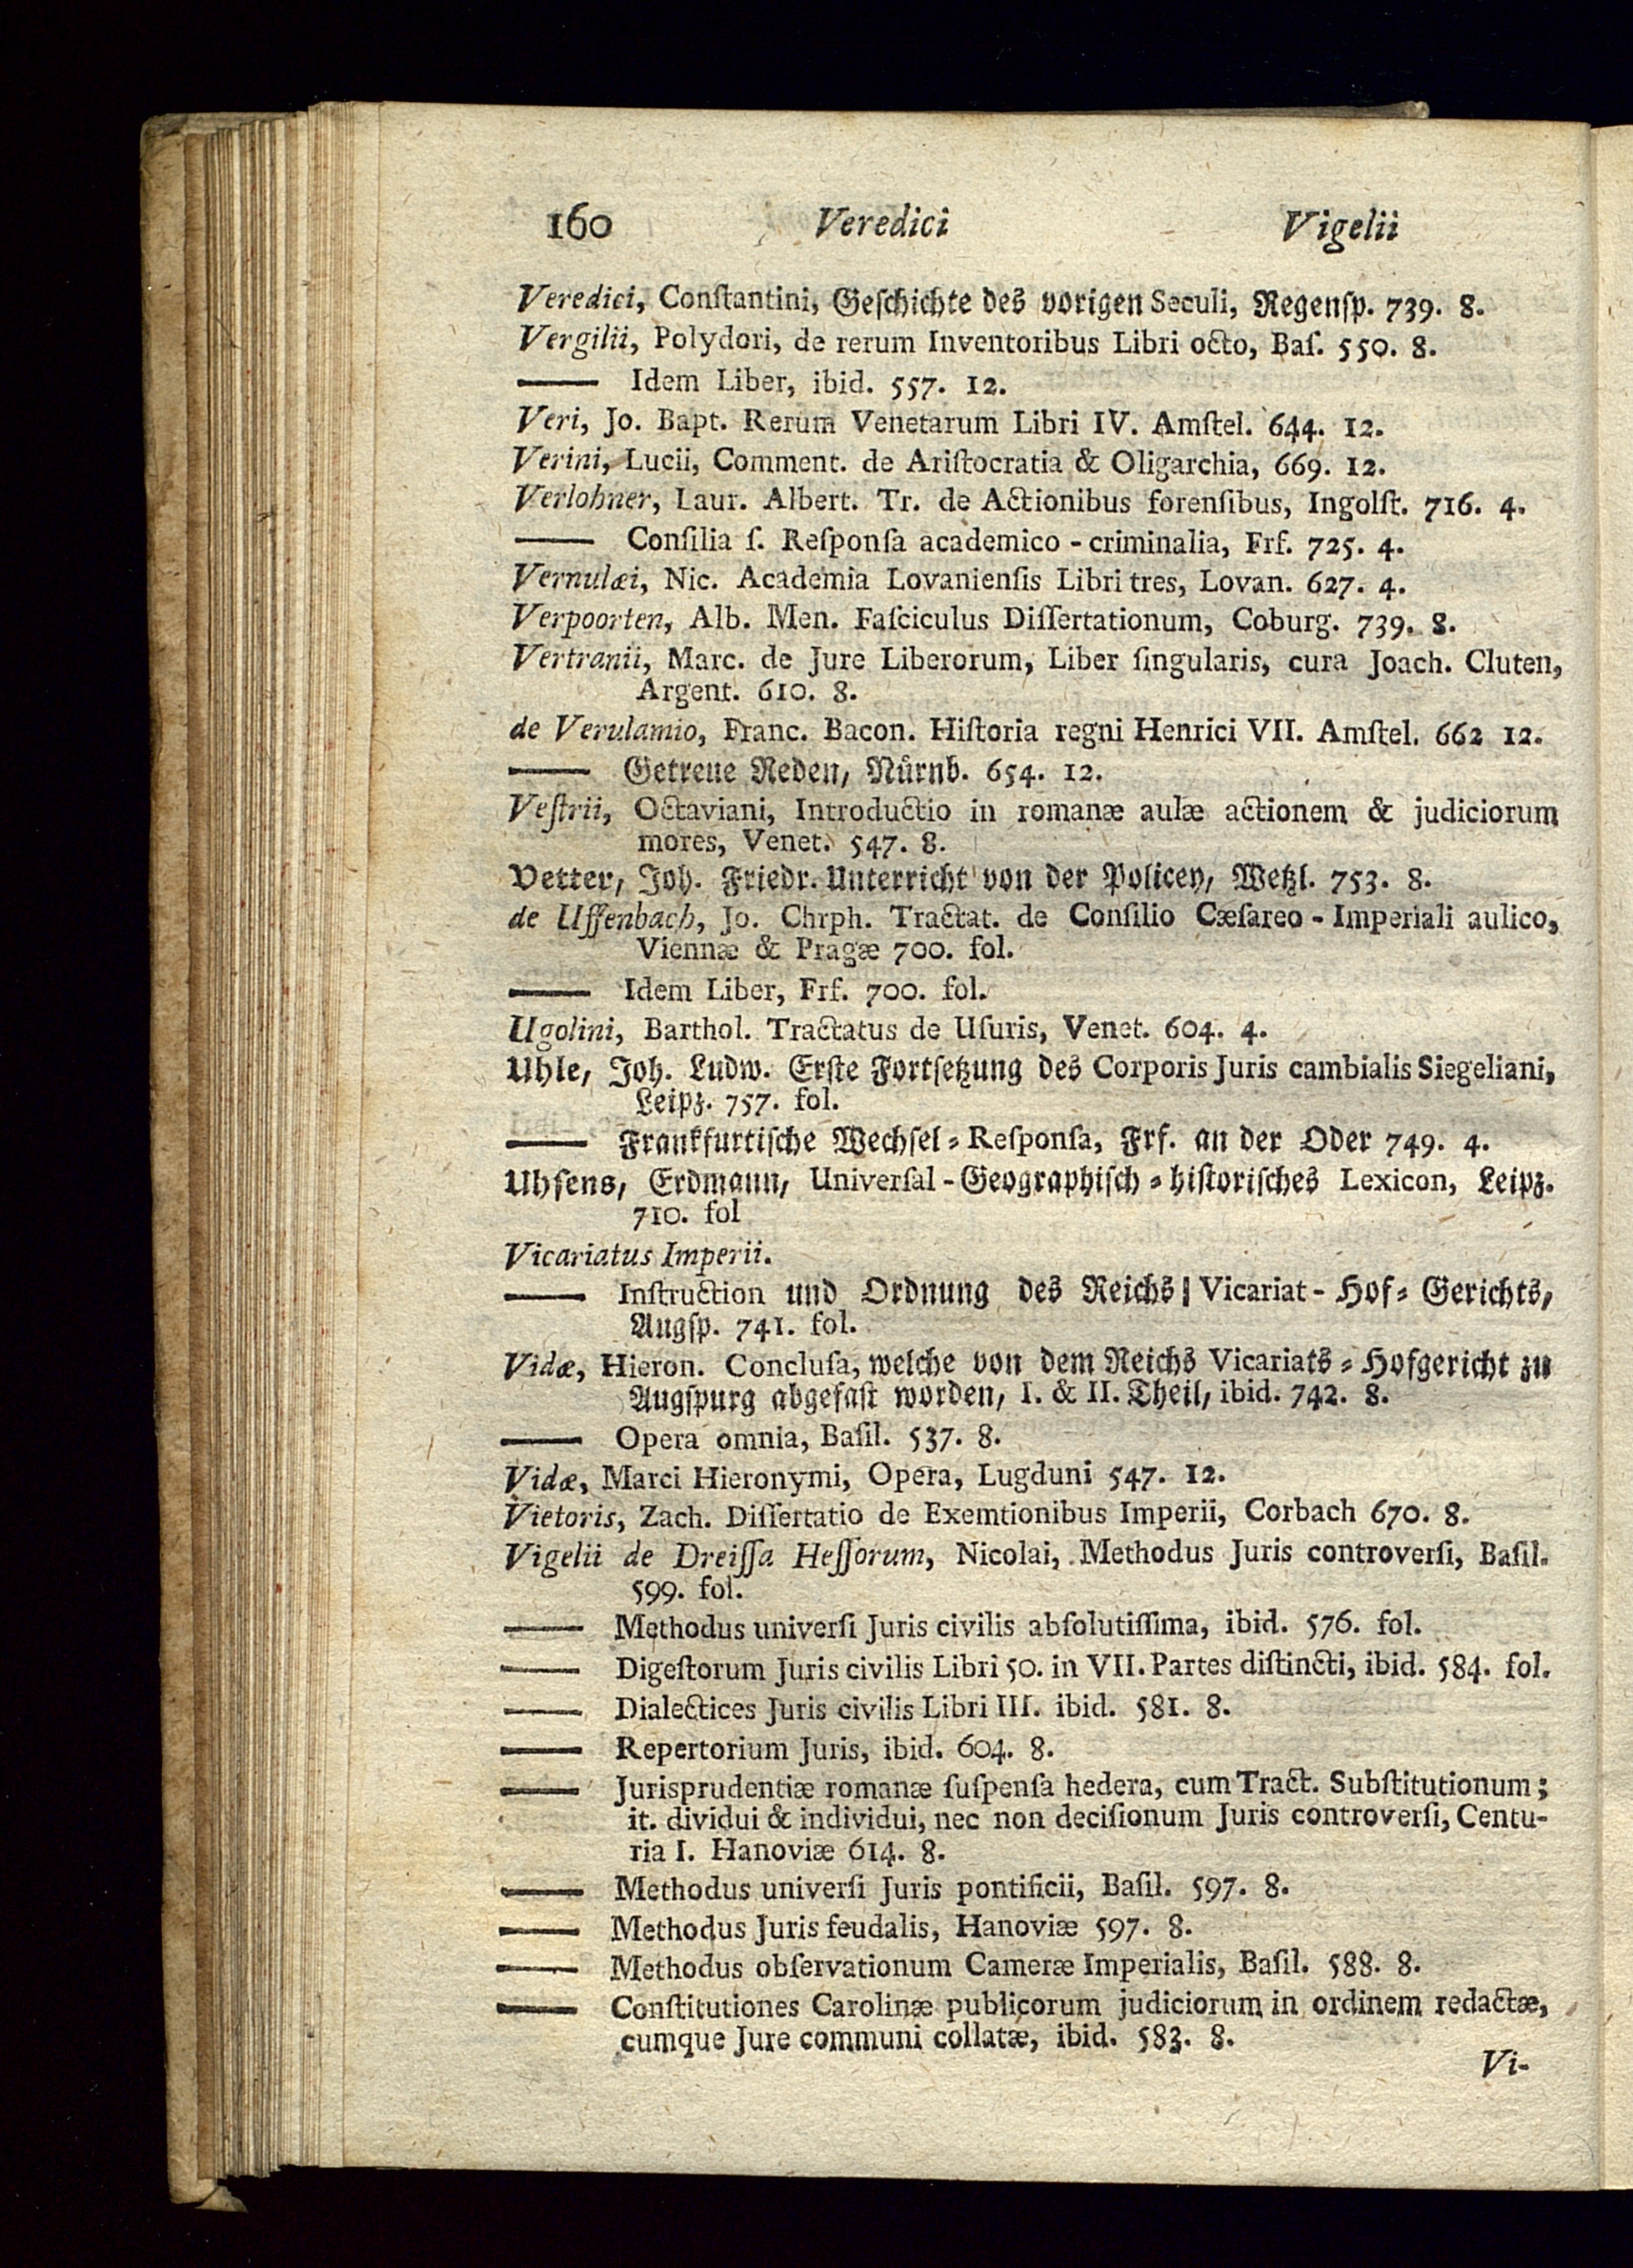 160 Veredici Vigelii
Veredici, Conſtantini, Geſchichte des vorigen Seculi, Regenſp. 739. 8.
Vergilii, Polydori, de rerum Inventoribus Libri octo, Baſ. 550. 8.
—— Idem Liber, ibid. 557. 12.
Veri, Jo. Bapt. Rerum Venetarum Libri IV. Amſtel. 644. 12.
Verini, Lucii, Comment. de Ariſtocratia & Oligarchia, 669. 12.
Verlohner, Laur. Albert. Tr. de Actionibus forenſibus, Ingolſt. 716. 4.
—— Conſilia ſ. Reſponſa academico - criminalia, Frf. 725. 4.
Vernulæi, Nic. Academia Lovanienſis Libri tres, Lovan. 627. 4.
Verpoorten, Alb. Men. Faſciculus Diſſertationum, Coburg. 739. 8.
Vertranii, Marc. de Jure Liberorum, Liber ſingularis, cura Joach. Cluten,
Argent. 610. 8.
de Verulamio, Franc. Bacon. Hiſtoria regni Henrici VII. Amſtel. 662 12.
—— Getreue Reden, Nürnb. 654. 12.
Veſtrii, Octaviani, Introductio in romanæ aulæ actionem & judiciorum
mores, Venet. 547. 8.
Vetter, Joh. Friedr. Unterricht von der Policey, Wetzl. 753. 8.
de Uffenbach, Jo. Chrph. Tractat. de Conſilio Cæſareo - Imperiali aulico,
Viennæ & Pragæ 700. fol.
—— Idem Liber, Frf. 700. fol.
Ugolini, Barthol. Tractatus de Uſuris, Venet. 604. 4.
Uhle, Joh. Ludw. Erſte Fortſetzung des Corporis Juris cambialis Siegeliani,
Leipz. 757. fol.
—— Frankfurtiſche Wechſel⸗Reſponſa, Frf. an der Oder 749. 4.
Uhſens, Erdmann, Univerſal - Geographiſch ⸗ hiſtoriſches Lexicon, Leipz.
710. fol
Vicariatus Imperii.
—— Inſtruction und Ordnung des Reichs| Vicariat - Hof⸗ Gerichts,
Augſp. 741. fol.
Vidæ, Hieron. Concluſa, welche von dem Reichs Vicariats ⸗ Hofgericht zu
Augſpurg abgefaſt worden, I. & II. Theil, ibid. 742. 8.
—— Opera omnia, Baſil. 537. 8.
Vidæ, Marci Hieronymi, Opera, Lugduni 547. 12.
Vietoris, Zach. Diſſertatio de Exemtionibus Imperii, Corbach 670. 8.
Vigelii de Dreiſſa Heſſorum, Nicolai, Methodus Juris controverſi, Baſil.
599. fol.
—— Methodus univerſi Juris civilis abſolutiſſima, ibid. 576. fol.
—— Digeſtorum Juris civilis Libri 50. in VII. Partes diſtincti, ibid. 584. fol.
—— Dialectices Juris civilis Libri III. ibid. 581. 8.
—— Repertorium Juris, ibid. 604. 8.
—— Jurisprudentiæ romanæ ſuſpenſa hedera, cum Tract. Subſtitutionum;
it. dividui & individui, nec non deciſionum Juris controverſi, Centu-
ria I. Hanoviæ 614. 8.
—— Methodus univerſi Juris pontificii, Baſil. 597. 8.
—— Methodus Juris feudalis, Hanoviæ 597. 8.
—— Methodus obſervationum Cameræ Imperialis, Baſil. 588. 8.
—— Conſtitutiones Carolinæ publicorum judiciorum in ordinem redactæ,
cumque Jure communi collatæ, ibid. 583. 8.
Vi-